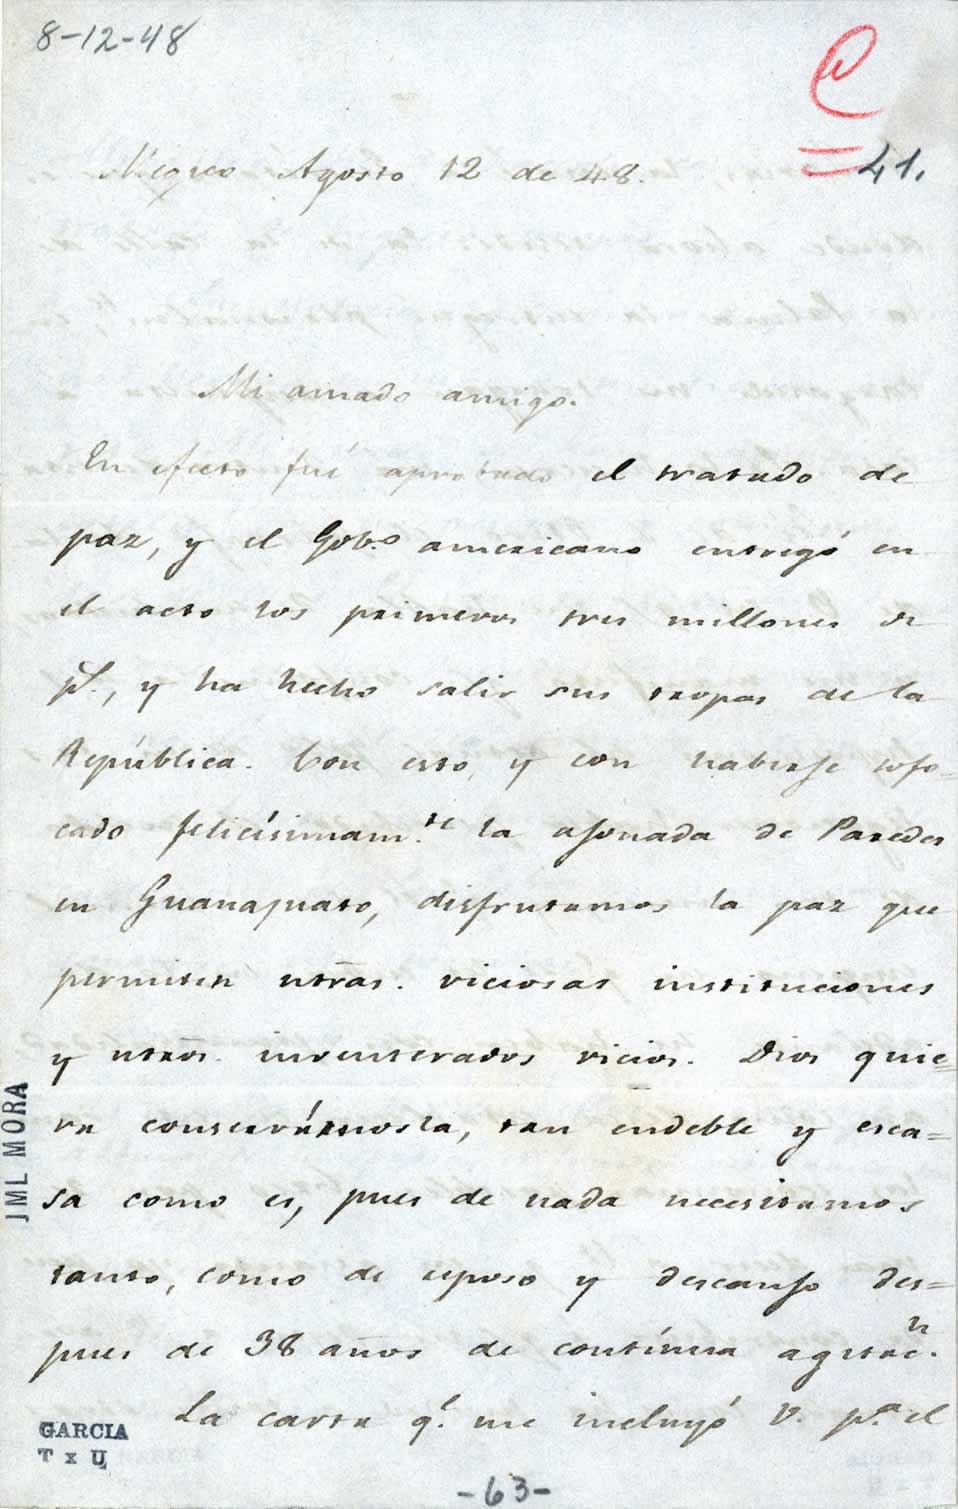 8-12-48
41.
Mégico Agosto 12 de 48.
Mi amado amigo.
En efecto fué aprobado el tratado de
paz, y el Gob.º americano entregó en
el acto los primeros tres millones de
p.s, y ha hecho salir sus tropas de la
República. Con esto, y con haberse sofo-
cado felicísimam.te la asonada de Paredes
en Guanajuato, disfrutamos la paz que
permiten ntras. viciosas instituciones
y ntros. inveterados vicios. Dios quie=
ra conservárnosla, tan endeble y esca=
sa como es, pues de nada necesitamos
tanto, como de reposo y descanso des=
pues de 38 años de contínua agitac.n
La carta q.e me incluyó V. p.a el
JML MORA
GARCIA
T x U
-63-